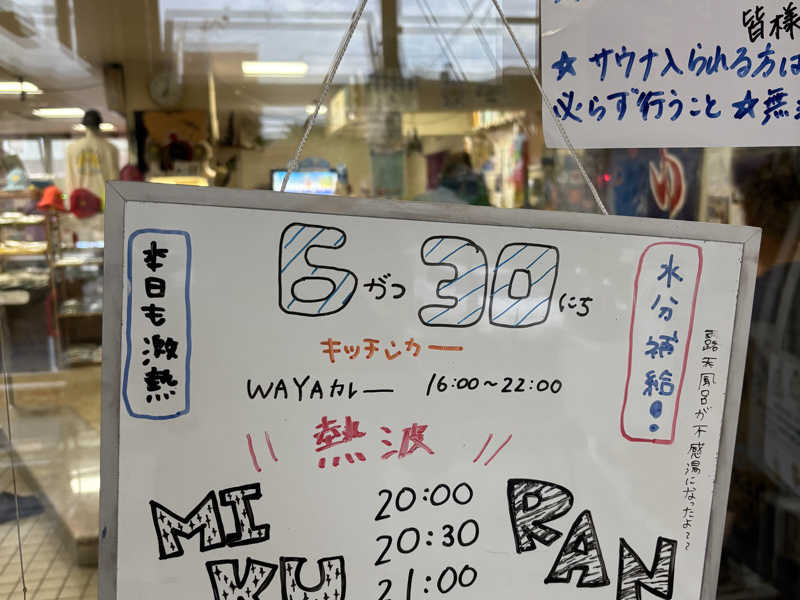 皆様
☆サウナ入られる方は
必らず行うこと ☆無
ゆ
本日も激熱
6がつ30にち
水分補給!!
露天風呂が不感湯になったよ〜〜
キッチンカー
WAYAカレー 16:00〜22:00
熱波
MIKU
20:00
20:30
21:00
RAN